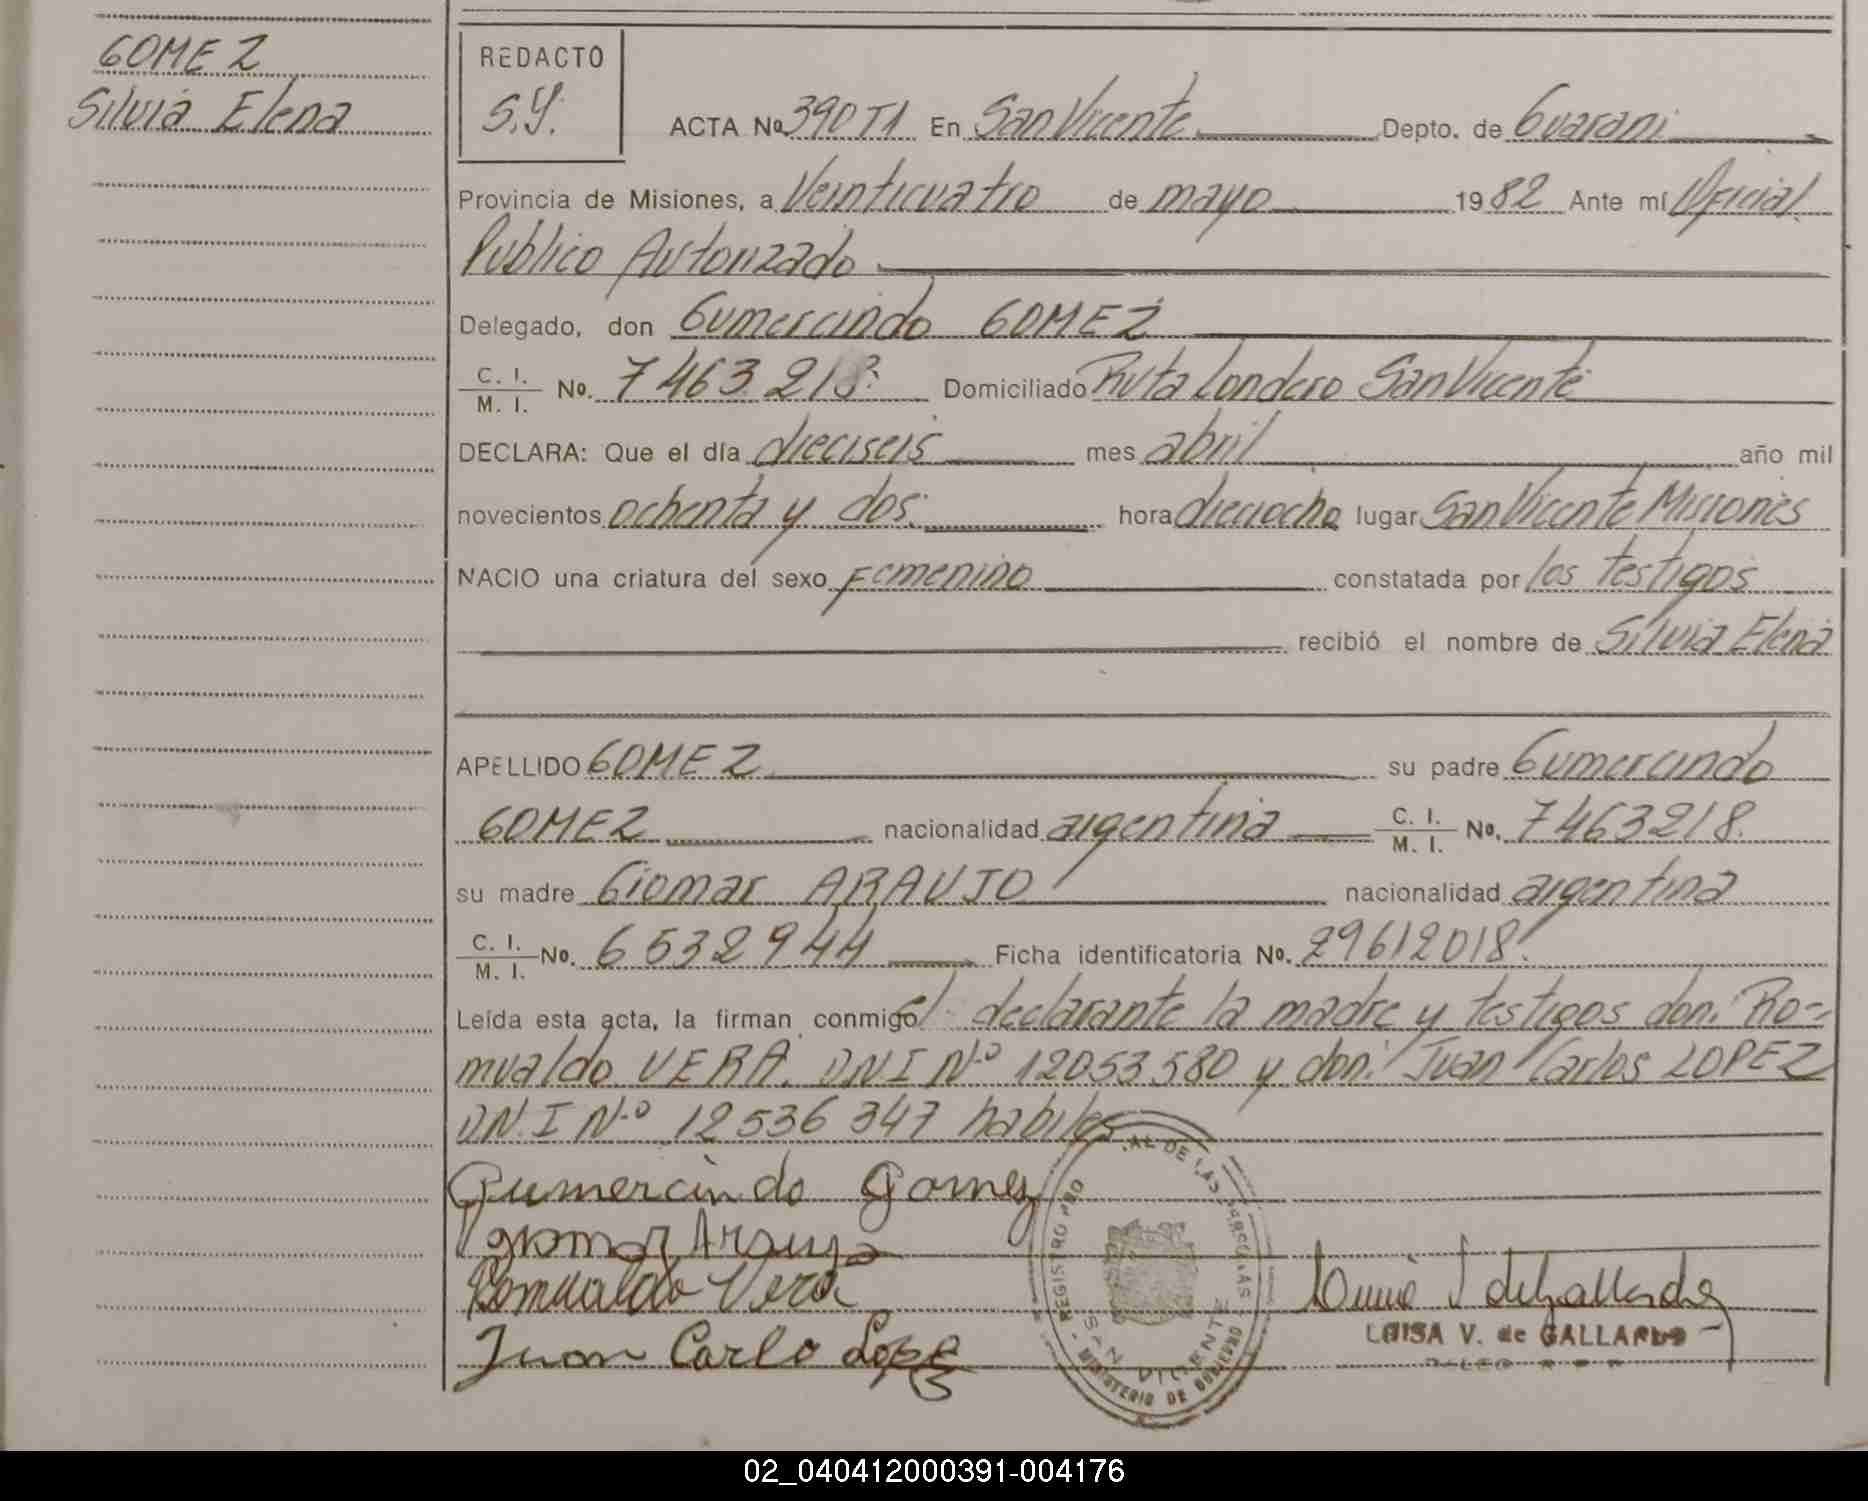 GOMEZ
Silvia Elena
REDACTO
S.Y.
ACTA No. 390 T1 En San Vicente Depto. de Guarani
Provincia de Misiones, a Veinticuatro de mayo 1982 Ante mí Oficial
Publico Autorizado
Delegado, don Gumercindo GOMEZ
C. I. / M. I. No. 7463.218. Domiciliado Ruta Londero San Vicente
DECLARA: Que el día dieciseis mes abril año mil
novecientos ochenta y dos. hora dieciocho lugar San Vicente Misiones
NACIO una criatura del sexo femenino constatada por los testigos
recibió el nombre de Silvia Elena
APELLIDO GOMEZ su padre Gumercindo
GOMEZ nacionalidad argentina C. I. / M. I. No. 7463218.
su madre Giomar ARAUJO nacionalidad argentina
C. I. / M. I. No. 6532944 Ficha identificatoria No. 29612018.
Leída esta acta, la firman conmigo el declarante la madre y testigos don: Ro-
mualdo VERA. DNI Nº 12053580 y don: Juan Carlos LOPEZ
DN.I Nº 12536347 habiles
Gumercindo Gomez
Giomar Araujo
Romualdo Vera
Juan Carlo Lope
REGISTRO PRO AL DE LAS PERSONAS
SAN VICENTE
MINISTERIO DE GOBIERNO
de Gallardo
LUISA V. de GALLARDO
02_040412000391-004176